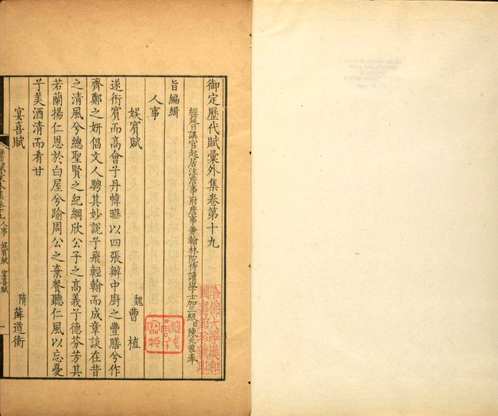 御定歷代賦彙外集卷第十九
經筵日講官起居注詹事府詹事兼翰林院侍讀學士加三級臣陳元龍奉
旨編輯
人事
娛賓賦 魏曹植
遂衎賓而高會兮丹幃曄以四張辦中廚之豐膳兮作
齊鄭之妍倡文人騁其妙說兮飛輕翰而成章談在昔
之清風兮總聖賢之紀綱欣公子之高義兮德芬芳其
若蘭揚仁恩於白屋兮踰周公之棄餐聽仁風以忘憂
兮美酒清而肴甘
宴喜賦 隋蕭道衡